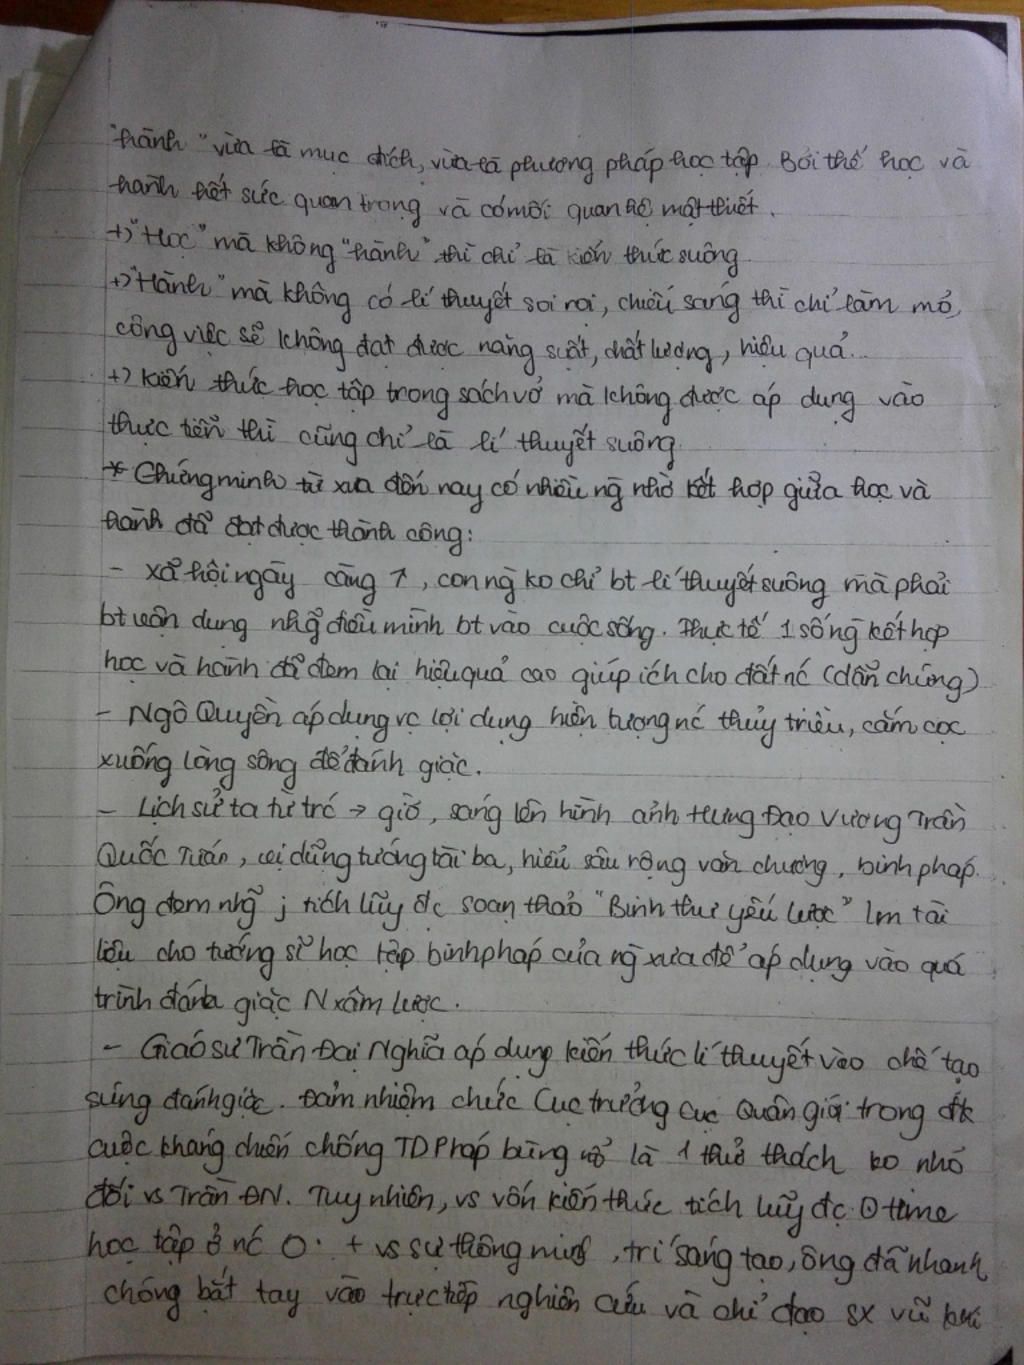 "hành" vừa là mục đích, vừa là phương pháp học tập. Bởi thế học và
hành hết sức quan trọng và có mối quan hệ mật thiết.
+) "Học" mà không "hành" thì chỉ là kiến thức suông.
+) "Hành" mà không có lí thuyết soi rọi, chiếu sáng thì chỉ làm mò,
công việc sẽ không đạt được năng suất, chất lượng, hiệu quả...
+) Kiến thức học tập trong sách vở mà không được áp dụng vào
thực tiễn thì cũng chỉ là lí thuyết suông.
* Chứng minh từ xưa đến nay có nhiều ng nhờ kết hợp giữa học và
hành đã đạt được thành công:
- xã hội ngày càng ↑, con ng ko chỉ bt lí thuyết suông mà phải
bt vận dụng nhg điều mình bt vào cuộc sống. Thực tế 1 số ng kết hợp
học và hành đã đem lại hiệu quả cao giúp ích cho đất nc (dẫn chứng)
- Ngô Quyền áp dụng vc lợi dụng hiện tượng nc thủy triều, cắm cọc
xuống lòng sông để đánh giặc.
- Lịch sử ta từ trc → giờ, sáng lên hình ảnh Hưng Đạo Vương Trần
Quốc Tuấn, vị dũng tướng tài ba, hiểu sâu rộng văn chương, binh pháp.
Ông đem nhg j tích lũy đc soạn thảo "Binh thư yếu lược" lm tài
liệu cho tướng sĩ học tập binh pháp của ng xưa để áp dụng vào quá
trình đánh giặc N xâm lược.
- Giáo sư Trần Đại Nghĩa áp dụng kiến thức lí thuyết vào chế tạo
súng đánh giặc. Đảm nhiệm chức Cục trưởng cục Quân giới trong đk
cuộc kháng chiến chống TD Pháp bùng nổ là 1 thử thách ko nhỏ
đối vs Trần ĐN. Tuy nhiên, vs vốn kiến thức tích lũy đc time
học tập ở nc + vs sự thông minh, trí sáng tạo, ông đã nhanh
chóng bắt tay vào trực tiếp nghiên cứu và chỉ đạo sx vũ khí